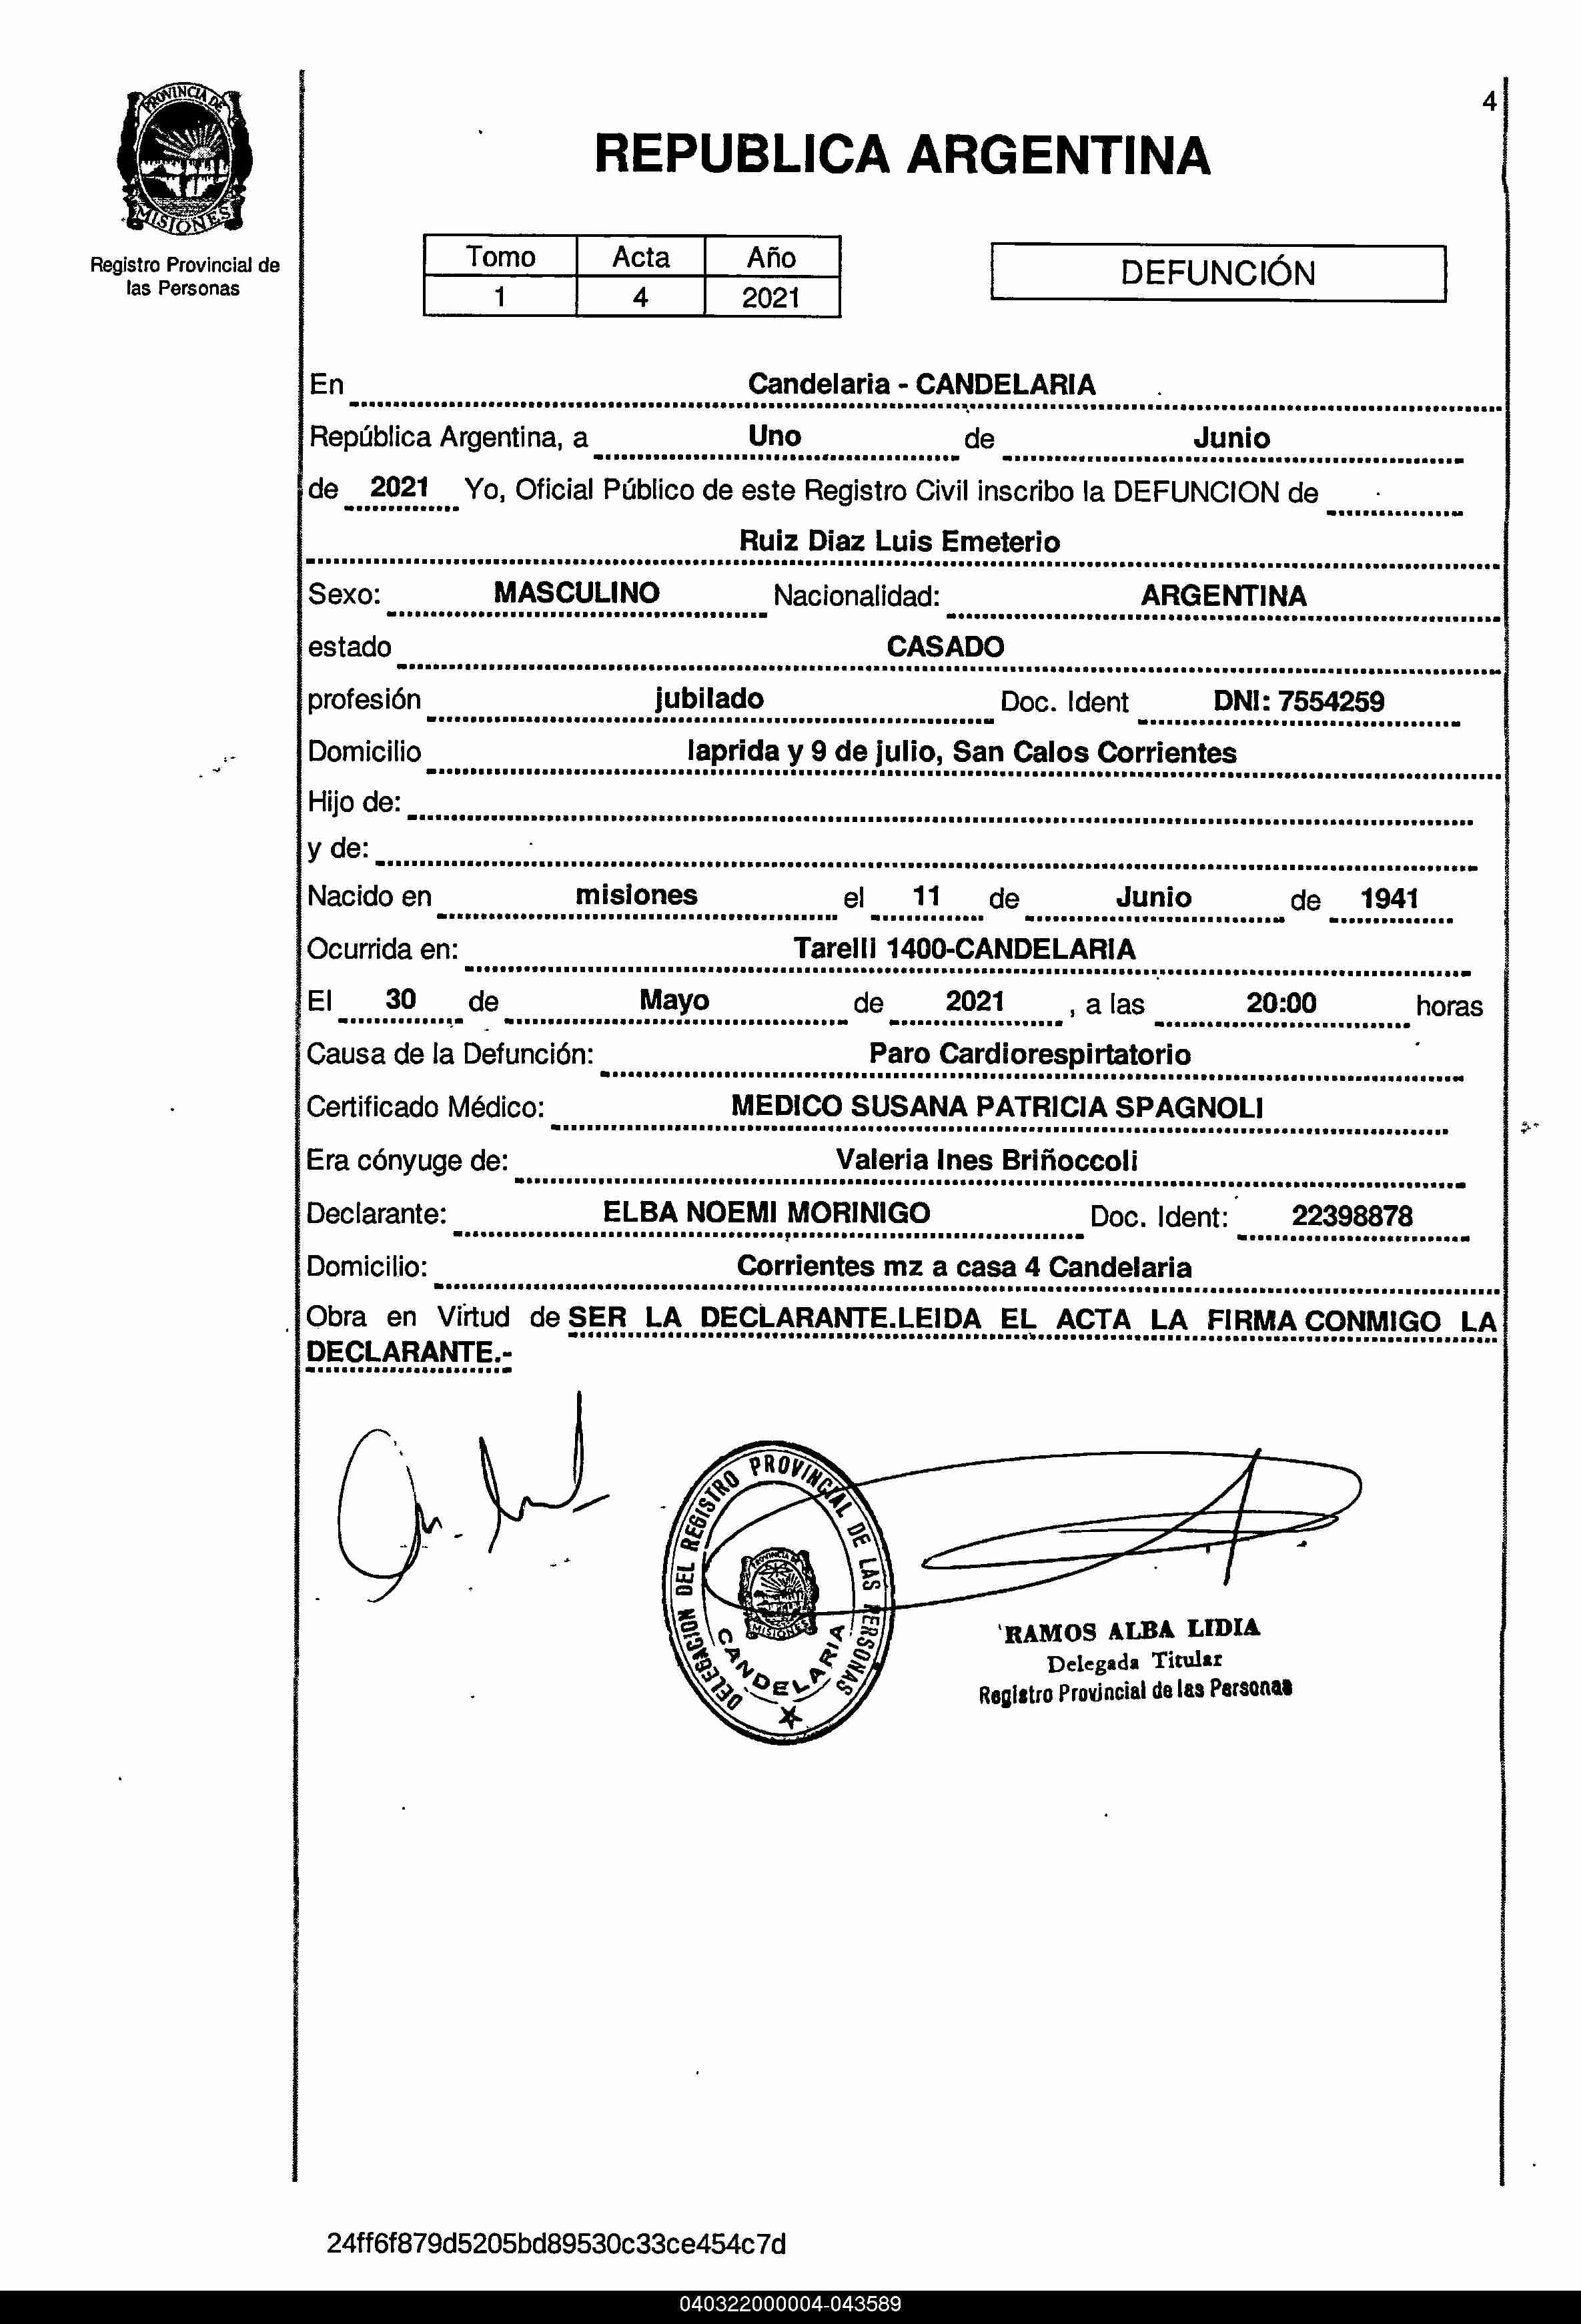 4
PROVINCIA DE
MISIONES
Registro Provincial de
las Personas
REPUBLICA ARGENTINA
Tomo Acta Año
1 4 2021
DEFUNCIÓN
En Candelaria - CANDELARIA
República Argentina, a Uno de Junio
de 2021 Yo, Oficial Público de este Registro Civil inscribo la DEFUNCION de
Ruiz Diaz Luis Emeterio
Sexo: MASCULINO Nacionalidad: ARGENTINA
estado CASADO
profesión jubilado Doc. Ident DNI: 7554259
Domicilio laprida y 9 de julio, San Calos Corrientes
Hijo de:
y de:
Nacido en misiones el 11 de Junio de 1941
Ocurrida en: Tarelli 1400-CANDELARIA
El 30 de Mayo de 2021 , a las 20:00 horas
Causa de la Defunción: Paro Cardiorespirtatorio
Certificado Médico: MEDICO SUSANA PATRICIA SPAGNOLI
Era cónyuge de: Valeria Ines Briñoccoli
Declarante: ELBA NOEMI MORINIGO Doc. Ident: 22398878
Domicilio: Corrientes mz a casa 4 Candelaria
Obra en Virtud de SER LA DECLARANTE.LEIDA EL ACTA LA FIRMA CONMIGO LA
DECLARANTE.-
DELEGACION DEL REGISTRO PROVINCIAL DE LAS PERSONAS
PROVINCIA DE
MISIONES
CANDELARIA
RAMOS ALBA LIDIA
Delegada Titular
Registro Provincial de las Personas
24ff6f879d5205bd89530c33ce454c7d
040322000004-043589